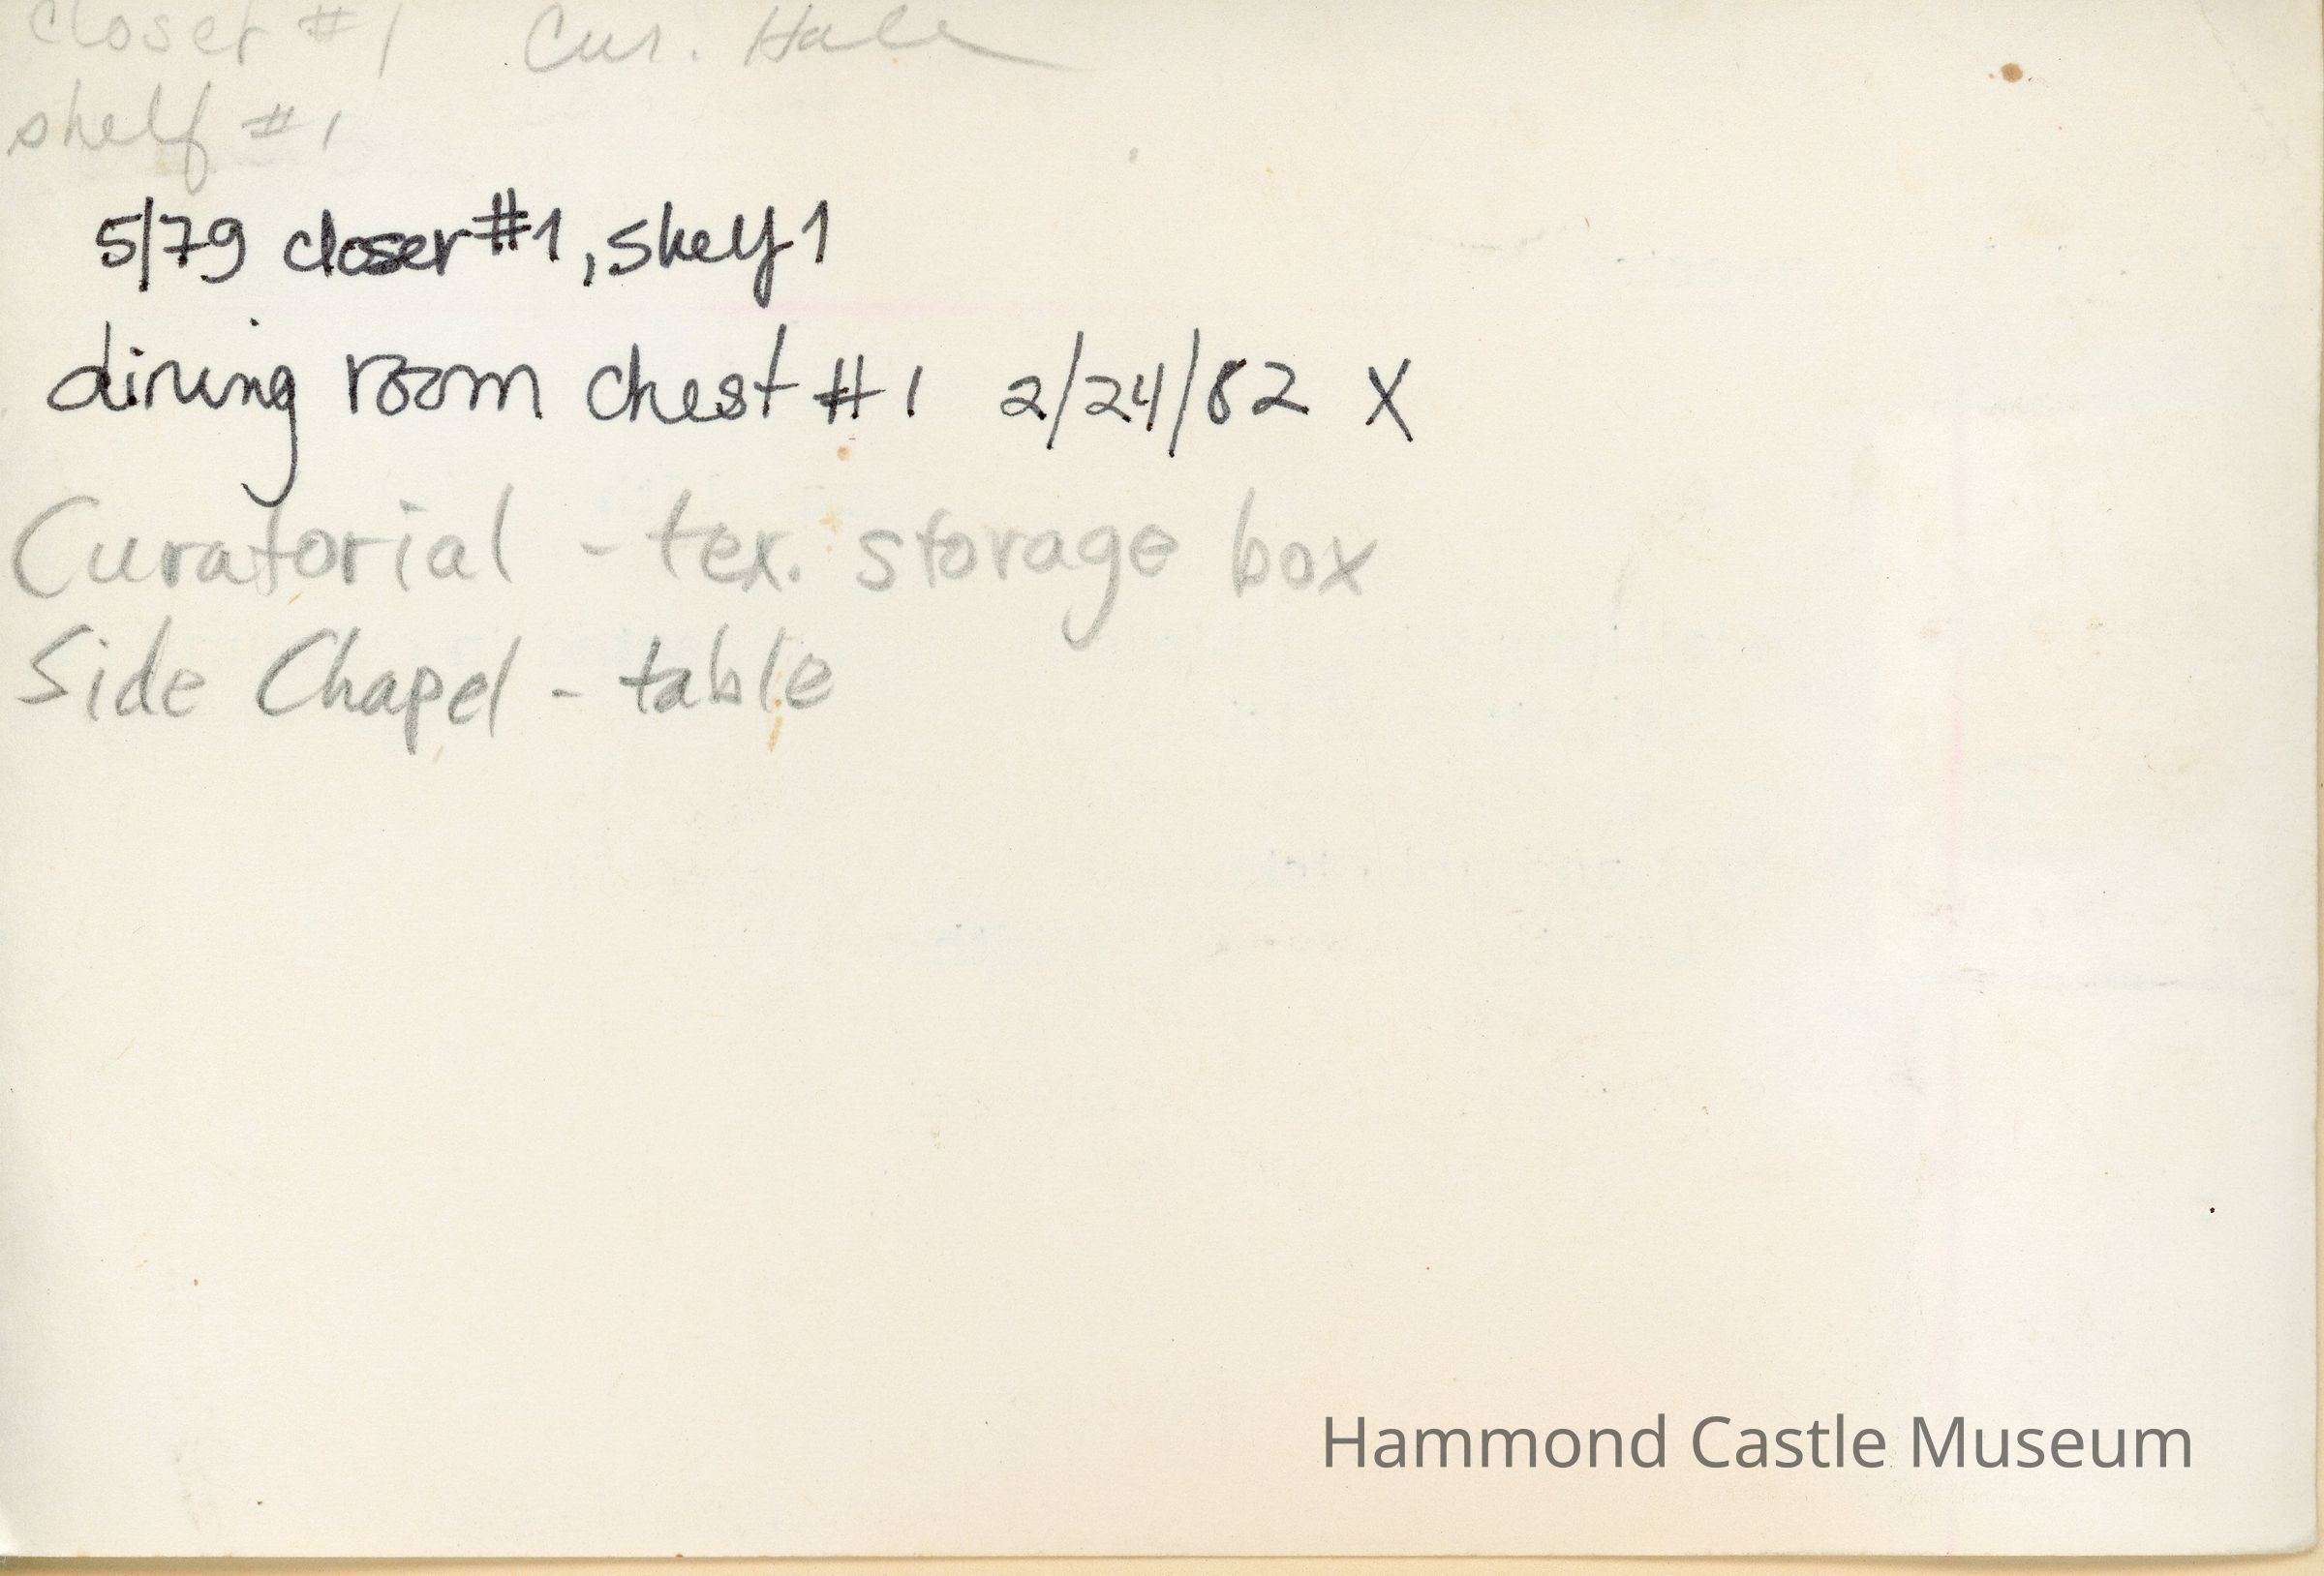 closet #1 Cur. Hall
shelf #1
5/79 closet #1, shelf 1
dining room chest #1 2/24/82 X
Curatorial - tex. storage box
Side Chapel - table
Hammond Castle Museum